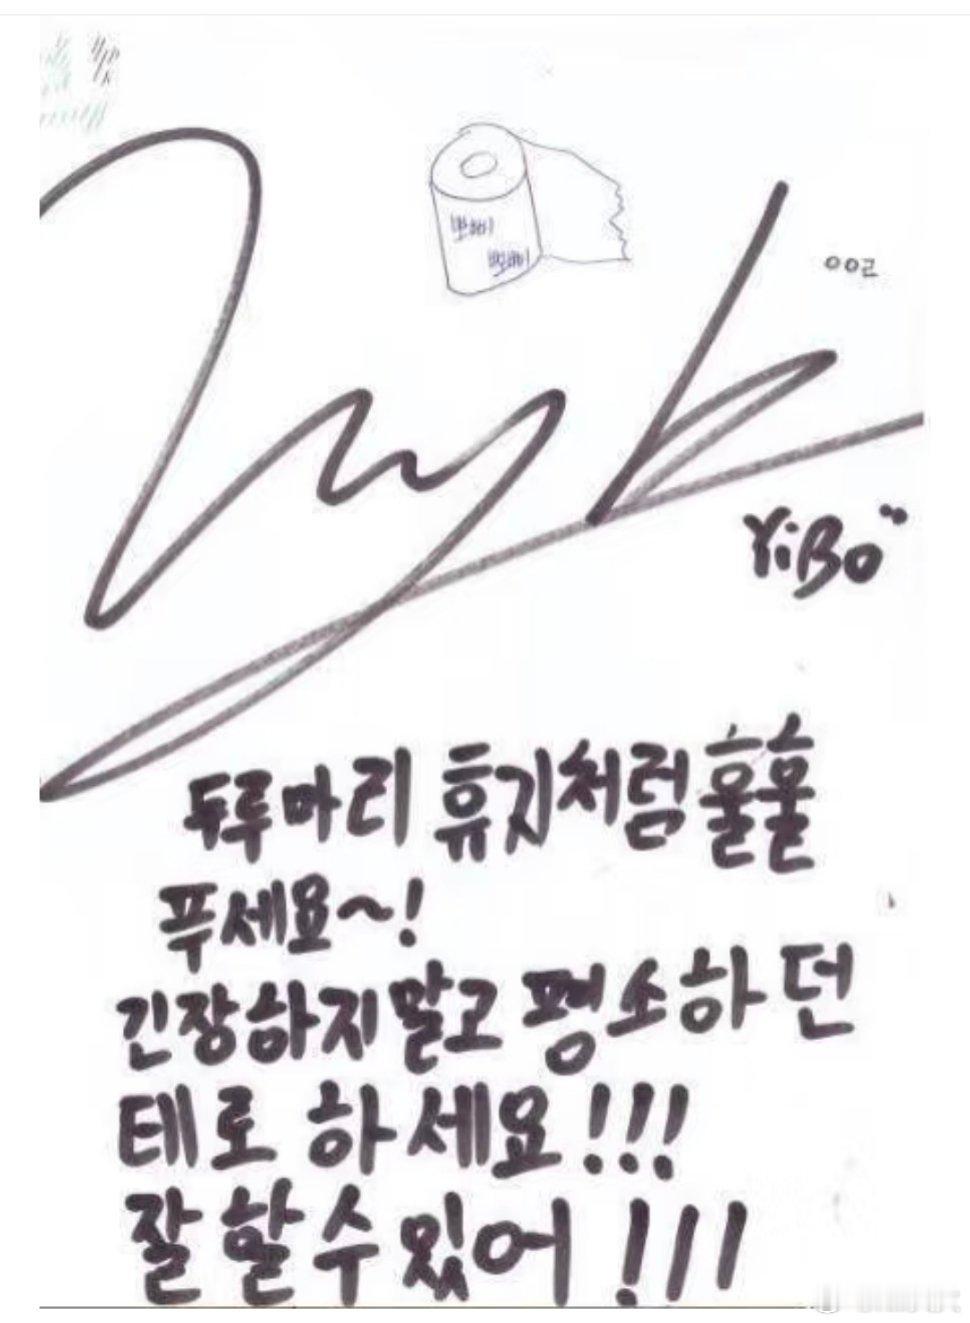 뽀삐
뽀삐
YiBo
두루마리 휴지처럼 훌훌
푸세요~!
긴장하지말고 평소하던
테로 하세요!!!
잘 할 수 있어!!!